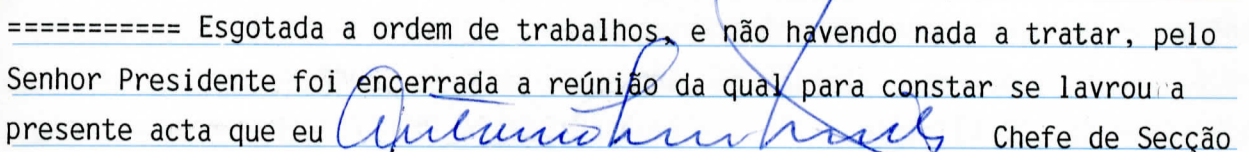 =========== Esgotada a ordem de trabalhos, e não havendo nada a tratar, pelo
Senhor Presidente foi encerrada a reúnião da qual para constar se lavrou a
presente acta que eu António Chefe de Secção